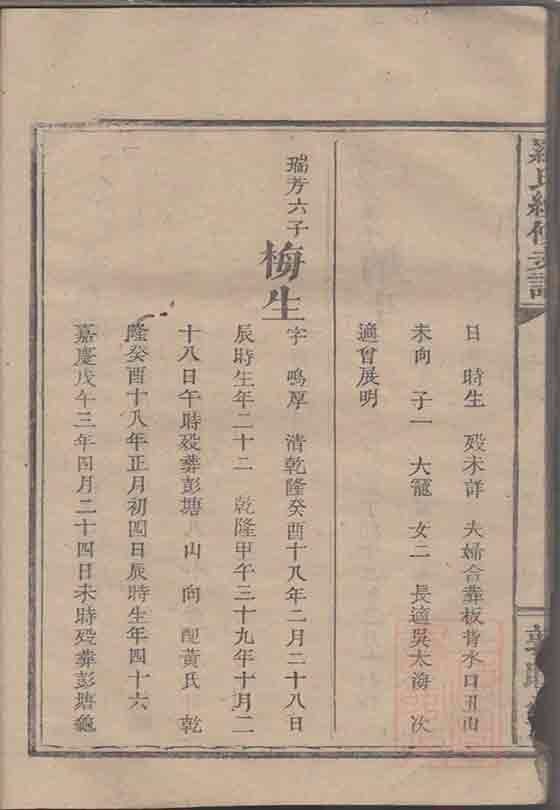 羅氏續修支譜
日　時生　歿未詳　夫婦合葬板背水口丑山
未向　子一　大寵　女二　長適吳太海　次
適曾展明
瑞芳六子
梅生
字　鳴厚　清乾隆癸酉十八年二月二十八日
辰時生年二十二　乾隆甲午三十九年十月二
十八日午時歿葬彭塘　山　向　配黃氏　乾
隆癸酉十八年正月初四日辰時生年四十六
嘉慶戊午三年四月二十四日未時歿葬彭塘龜